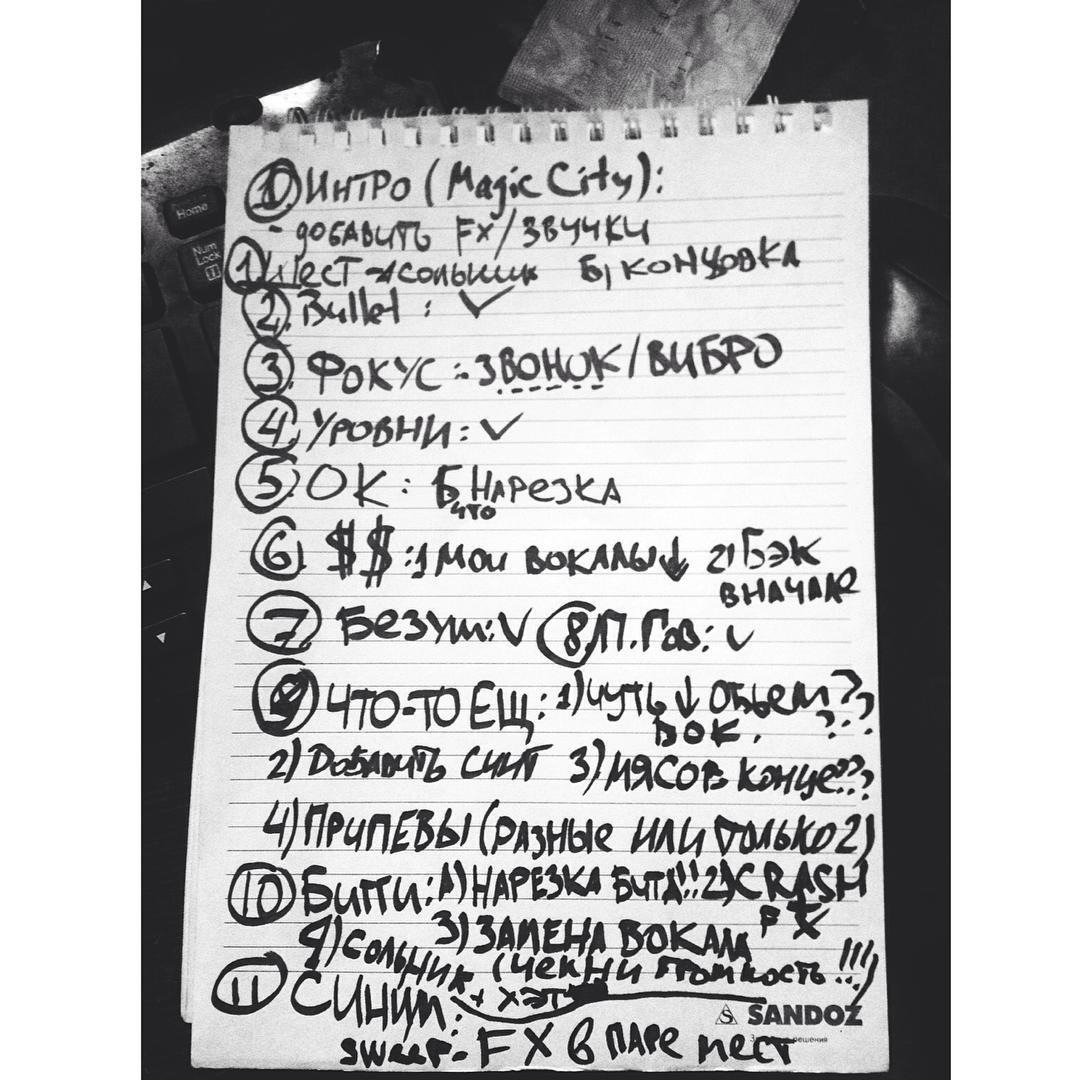 Home
Num Lock
1
0) ИНТРО (Magic City):
- ДОБАВИТЬ FX/ЗВУЧКИ
1) КОНЦОВКА
2. Bullet : ✓
3. ФОКУС : - ЗВОНОК/ВИБРО
4. УРОВНИ: ✓
5. ОК : НАРЕЗКА
что
6. $$ : 1) МОИ ВОКАЛЫ ↓ 2) БЭК
ВНАЧАЛЕ
7 Безум: ✓ 8) П.Гов: ✓
9 ЧТО-ТО ЕЩ: 1) Чуть ↓ Объем ??
ВОК. ???
2) Добавить СИНТ 3) МЯСО В конце???
4) ПРИПЕВЫ (РАЗНЫЕ ИЛИ ТОЛЬКО 2)
10 Битти: 1) НАРЕЗКА БИТА!! 2) CRASH
FX
3) ЗАМЕНА ВОКАЛА
4) Сольник (ЧЕКНИ ГРОМКОСТЬ !!!)
11 СИНИМ: + ХЭТ
SANDOZ
решения
sweep - FX В ПАРЕ МЕСТ